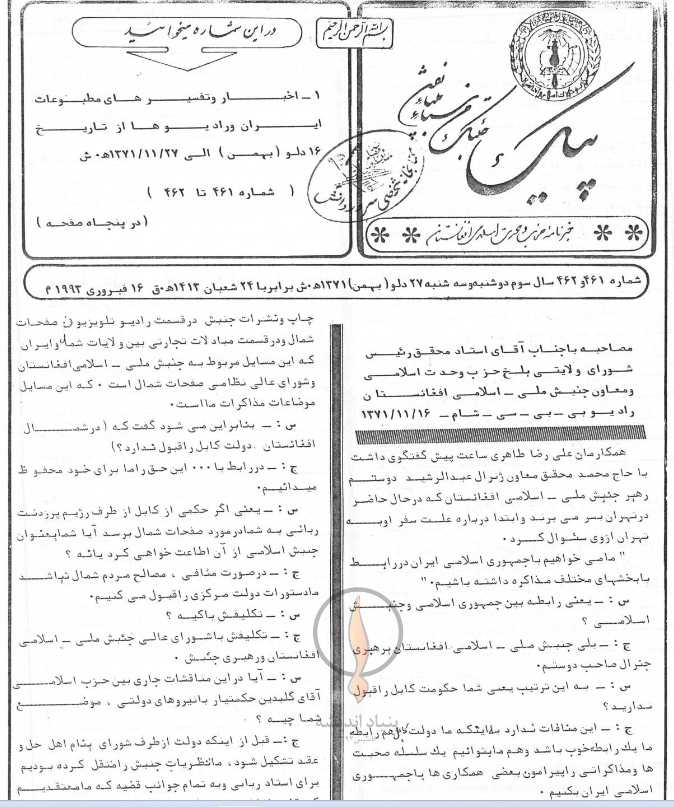 بسم الله الرحمن الرحیم
پیک
خبرنامه حزب وحدت اسلامی افغانستان
در این شماره میخوانید
۱ــ اخبار وتفسیر های مطبوعات
ایران ورادیو ها از تاریخ
۱۶ دلو ( بهمن ) الی ۱۳۷۱/۱۱/۲۷ه‍۰ش
( شماره ۴۶۱ تا ۴۶۲ )
(در پنجاه صفحه )
شماره ۴۶۱و ۴۶۲ سال سوم دوشنبه‌وسه شنبه۲۷دلو( بهمن)۱۳۷۱ه‍۰ش برابربا ۲۴ شعبان ۱۴۱۳ه‍۰ق ۱۶ فبروری ۱۹۹۳ م
مصاحبه باجناب آقای استاد محقق رئیس
شورای ولایتی بلخ حزب وحدت اسلامی
ومعاون جنبش ملی ــ اسلامی افغانستان
رادیو بی ــ بی ــ سی ــ شام ــ ۱۳۷۱/۱۱/۱۶
همکارمان علی رضا طاهری ساعت پیش گفتگوی داشت
با حاج محمد محقق معاون ژنرال عبدالرشید دوستم
رهبر جنبش ملی ــ اسلامی افغانستان که درحال حاضر
درتهران بسر می برند وابتدا درباره علت سفر اوبه
تهران ازوی سئوال کرد۰
" مامی خواهیم باجمهوری اسلامی ایران دررابطه
بابخشهای مختلف مذاکره داشته باشیم۰"
س : ــ یعنی رابطه بین جمهوری اسلامی وجنبش
اسلامی ؟
ج : ــ بلی جنبش ملی ــ اسلامی افغانستان برهبری
جنرال صاحب دوستم۰
س : ــ به این ترتیب یعنی شما حکومت کابل راقبول
ندارید؟
ج : ــ این منافات ندارد بااینکه ما دولت هم رابطه
ما یك رابطه‌خوب باشد وهم مابتوانیم یك سلسله صحبت
ها ومذاکراتی راپیرامون بعضی همکاری ها باجمهوری
اسلامی ایران بکنیم ۰
چاپ ونشرات جنبش درقسمت رادیو تلویزیون صفحات
شمال ودرقسمت مبادلات تجارتی بین ولایات شمال‌وایران
که این مسایل مربوط به جنبش ملی ــ اسلامی‌افغانستان
وشورای عالی نظامی صفحات شمال است ۰ که این مسایل
موضاعات مذاکرات مااست۰
س : ــ بنابراین می شود گفت که (درشمال
افغانستان دولت کابل راقبول ندارد؟)
ج : ــ دررابط با ۰۰۰ این حق راما برای خود محفوظ
میدانیم۰
س : ــ یعنی اگر حکمی از کابل از طرف رژیم پرزدنت
ربانی به شمادرمورد صفحات شمال برسد آیا شمابعنوان
جنبش اسلامی از آن اطاعت خواهی کرد یانه ؟
ج : ــ درصورت منافی ، مصالح مردم شمال نباشد
مادستورات دولت مرکزی راقبول می کنیم۰
س : ــ تکلیفش باکیه ؟
ج : ــ تکلیفش باشورای عالی جنبش ملی ــ اسلامی
افغانستان ورهبری جنبش ۰
س : ــ آیا در این مناقشات جاری بین حزب اسلامی
آقای گلبدین حکمتیار بانیروهای دولتی ، موضع
شما چیه ؟
ج :ــ قبل از اینکه دولت ازطرف شورای بنام اهل حل و
عقد تشکیل شود ، مانظریات جنبش رامنتقل کرده بودیم
برای استاد ربانی وبه تمام جوانب قضیه که مامعتقدیم
بنیاد اندیشه